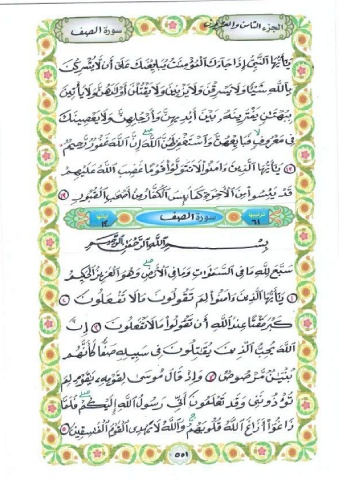 الجزء الثامن والعشرون
سورة الصف
يَٰٓأَيُّهَا ٱلنَّبِيُّ إِذَا جَآءَكَ ٱلْمُؤْمِنَٰتُ يُبَايِعْنَكَ عَلَىٰٓ أَن لَّا يُشْرِكْنَ
بِٱللَّهِ شَيْـًٔا وَلَا يَسْرِقْنَ وَلَا يَزْنِينَ وَلَا يَقْتُلْنَ أَوْلَٰدَهُنَّ وَلَا يَأْتِينَ
بِبُهْتَٰنٍ يَفْتَرِينَهُۥ بَيْنَ أَيْدِيهِنَّ وَأَرْجُلِهِنَّ وَلَا يَعْصِينَكَ
فِى مَعْرُوفٍ فَبَايِعْهُنَّ وَٱسْتَغْفِرْ لَهُنَّ ٱللَّهَ إِنَّ ٱللَّهَ غَفُورٌ رَّحِيمٌ
١٢ يَٰٓأَيُّهَا ٱلَّذِينَ ءَامَنُوا۟ لَا تَتَوَلَّوْا۟ قَوْمًا غَضِبَ ٱللَّهُ عَلَيْهِمْ
قَدْ يَئِسُوا۟ مِنَ ٱلْءَاخِرَةِ كَمَا يَئِسَ ٱلْكُفَّارُ مِنْ أَصْحَٰبِ ٱلْقُبُورِ ١٣
ترتيبها ٦١ سورة الصف آياتها ١٤
بِسْمِ ٱللَّهِ ٱلرَّحْمَٰنِ ٱلرَّحِيمِ
سَبَّحَ لِلَّهِ مَا فِى ٱلسَّمَٰوَٰتِ وَمَا فِى ٱلْأَرْضِ وَهُوَ ٱلْعَزِيزُ ٱلْحَكِيمُ
١ يَٰٓأَيُّهَا ٱلَّذِينَ ءَامَنُوا۟ لِمَ تَقُولُونَ مَا لَا تَفْعَلُونَ ٢
كَبُرَ مَقْتًا عِندَ ٱللَّهِ أَن تَقُولُوا۟ مَا لَا تَفْعَلُونَ ٣ إِنَّ
ٱللَّهَ يُحِبُّ ٱلَّذِينَ يُقَٰتِلُونَ فِى سَبِيلِهِۦ صَفًّا كَأَنَّهُم
بُنْيَٰنٌ مَّرْصُوصٌ ٤ وَإِذْ قَالَ مُوسَىٰ لِقَوْمِهِۦ يَٰقَوْمِ لِمَ
تُؤْذُونَنِى وَقَد تَّعْلَمُونَ أَنِّى رَسُولُ ٱللَّهِ إِلَيْكُمْ فَلَمَّا
زَاغُوٓا۟ أَزَاغَ ٱللَّهُ قُلُوبَهُمْ وَٱللَّهُ لَا يَهْدِى ٱلْقَوْمَ ٱلْفَٰسِقِينَ ٥
٥٥١